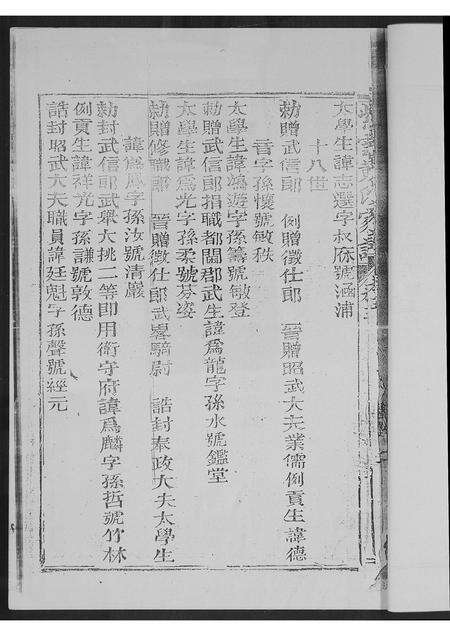 太學生諱志選字叔旅號涵浦
十八世
勅贈武信郎　例贈徵仕郎　晉贈昭武大夫業儒例貢生諱德
晉字孫懷號敏秩
太學生諱鴻遊字孫籌號敏登
勅贈武信郎捐職都閫郡武生諱為龍字孫水號鑑堂
太學生諱為光字孫柔號芬姿
勅贈修職郎　晉贈徵仕郎武畧騎尉　誥封奉政大夫太學生
諱為鳳字孫汝號清巖
勅封武信郎武舉大挑二等即用衛守府諱為麟字孫哲號竹林
例貢生諱祥光字孫謙號敦德
誥封昭武大夫職員諱廷魁字孫聲號經元